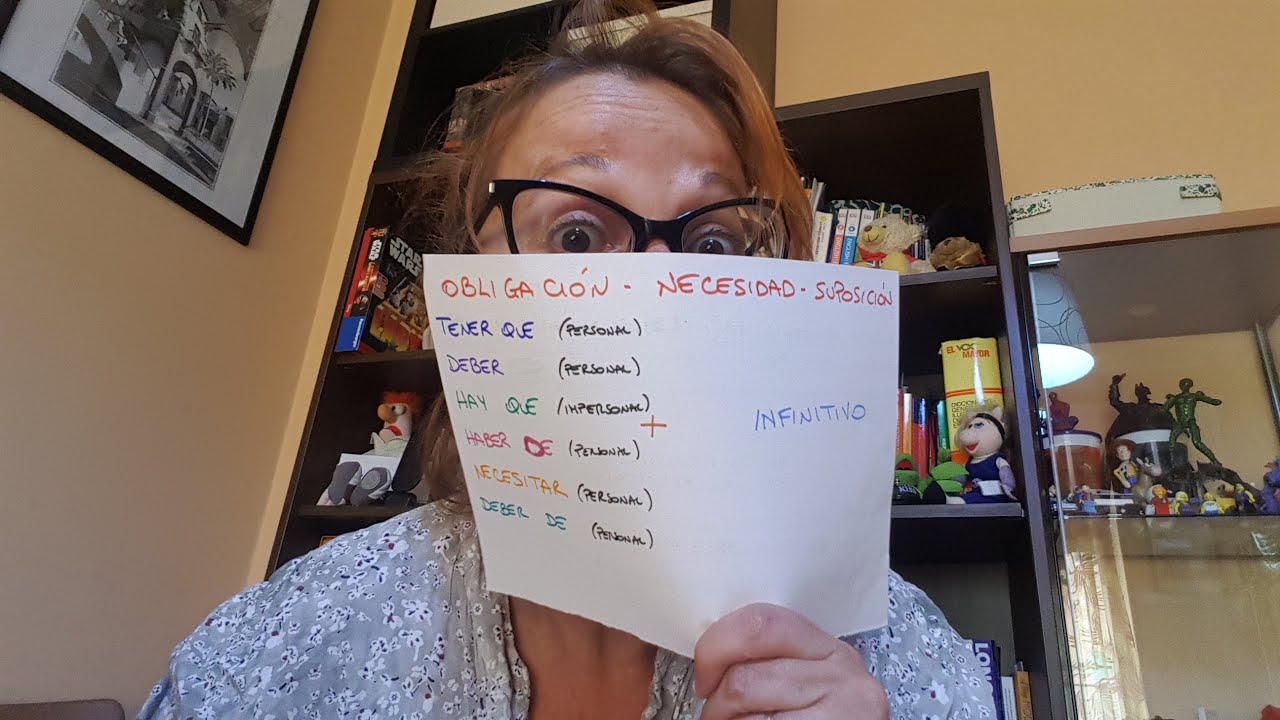 OBLIGACIÓN - NECESIDAD - SUPOSICIÓN
TENER QUE (PERSONAL)
DEBER (PERSONAL)
HAY QUE (IMPERSONAL)
+ INFINITIVO
HABER DE (PERSONAL)
NECESITAR (PERSONAL)
DEBER DE (PERSONAL)
STAR WARS
EL VOX
MAYOR